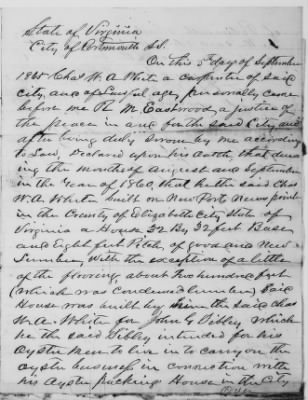 State of Virginia
City of Portsmouth SS.
On this 5 day of September
1865 Chas W. A. White a carpenter of said
city, and of lawful age, personally came
before me Th. M. Eastwood, a justice of
the peace in and for the said City and
after being duly sworn by me according
to Law, declared upon his oath, that dur
ing the months of August and September
in the Year of 1860, that he the said Chas
W. A. White built on New Ports News point
in the County of Elizabeth City State of
Virginia a House 22 By 32 feet Base
and Eight feet Pitch, of good and New
Lumber, With the exception of a little
of the flooring about Two hundred feet
(which was Condemed lumber) Said
House was built by him the said Chas
W. A. White for John G. Tibbey which
he the said Tibbey intended for his
oyster men to live in to carry on the
oyster business in connection with
his oyster packing House in the City